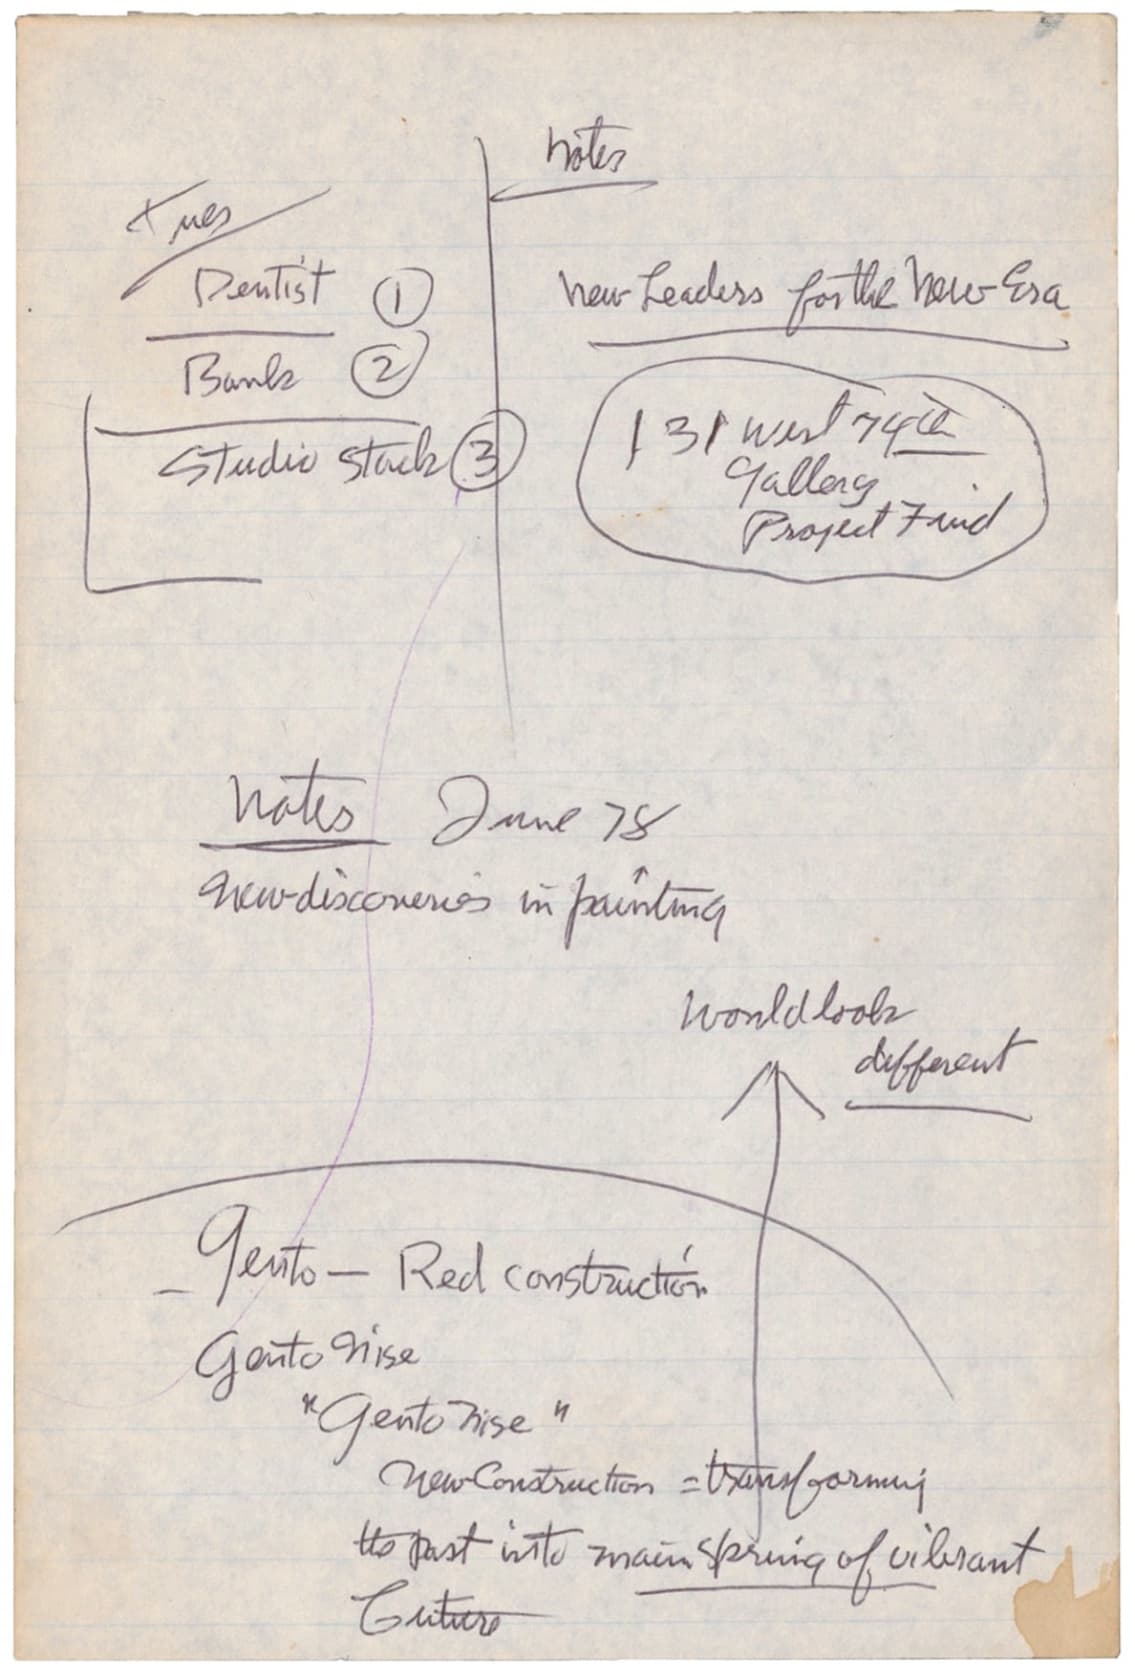 Tues
Dentist 1
Bank 2
Studio Stack 3
Notes
New Leaders for the New Era
131 West 74th
Gallery
Project Find
Notes June 78
New discoveries in painting
Would look
different
Gento — Red construction
Gento Nise
"Gento Nise"
New Construction = transforming
the past into mainspring of vibrant